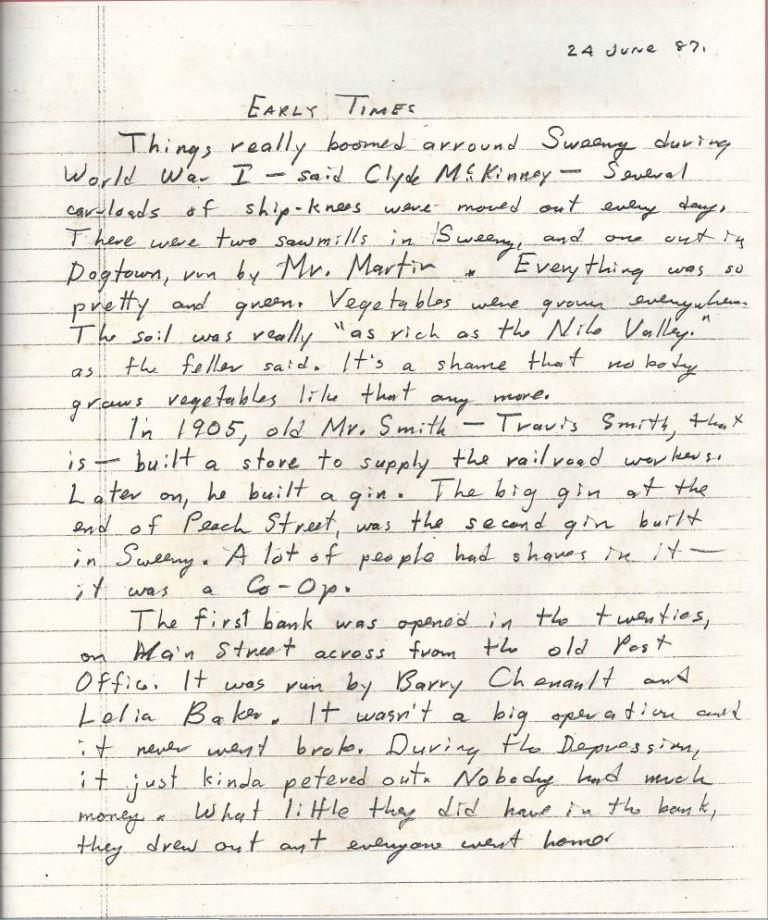 24 June 87.
Early Times
Things really boomed arround Sweeny during
World War I — said Clyde McKinney — Several
car-loads of ship-knees were moved out every day.
There were two sawmills in Sweeny, and one out in
Dogtown, run by Mr. Martin. Everything was so
pretty and green. Vegetables were grown everywhere.
The soil was really "as rich as the Nile Valley."
as the feller said. It's a shame that nobody
grows vegetables like that any more.
In 1905, old Mr. Smith — Travis Smith, that
is — built a store to supply the railroad workers.
Later on, he built a gin. The big gin at the
end of Peach Street, was the second gin built
in Sweeny. A lot of people had shares in it —
it was a Co-Op.
The first bank was opened in the twenties,
on Main Street across from the old Post
Office. It was run by Barry Chenault and
Lelia Baker. It wasn't a big operation and
it never went broke. During the Depression,
it just kinda petered out. Nobody had much
money. What little they did have in the bank,
they drew out ant everyone went home.